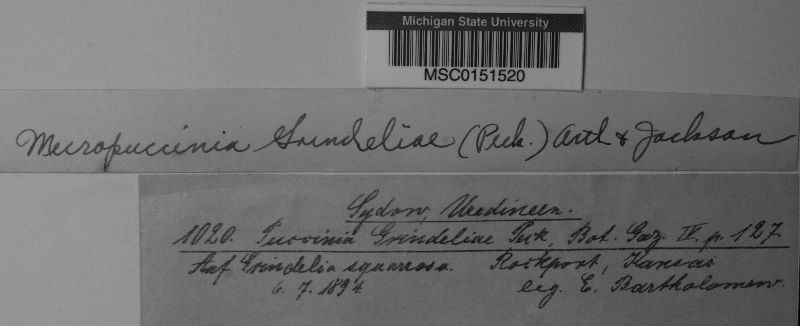 Michigan State University
MSC0151520
Micropuccinia Grindeliae (Peck.) Arth & Jackson
Sydow, Uredineen.
1020. Puccinia Grindeliae Peck, Bot. Gaz. IV. p. 127.
Auf Grindelia squarrosa. Rockport, Kansas
6. 7. 1894. leg. E. Bartholomew.